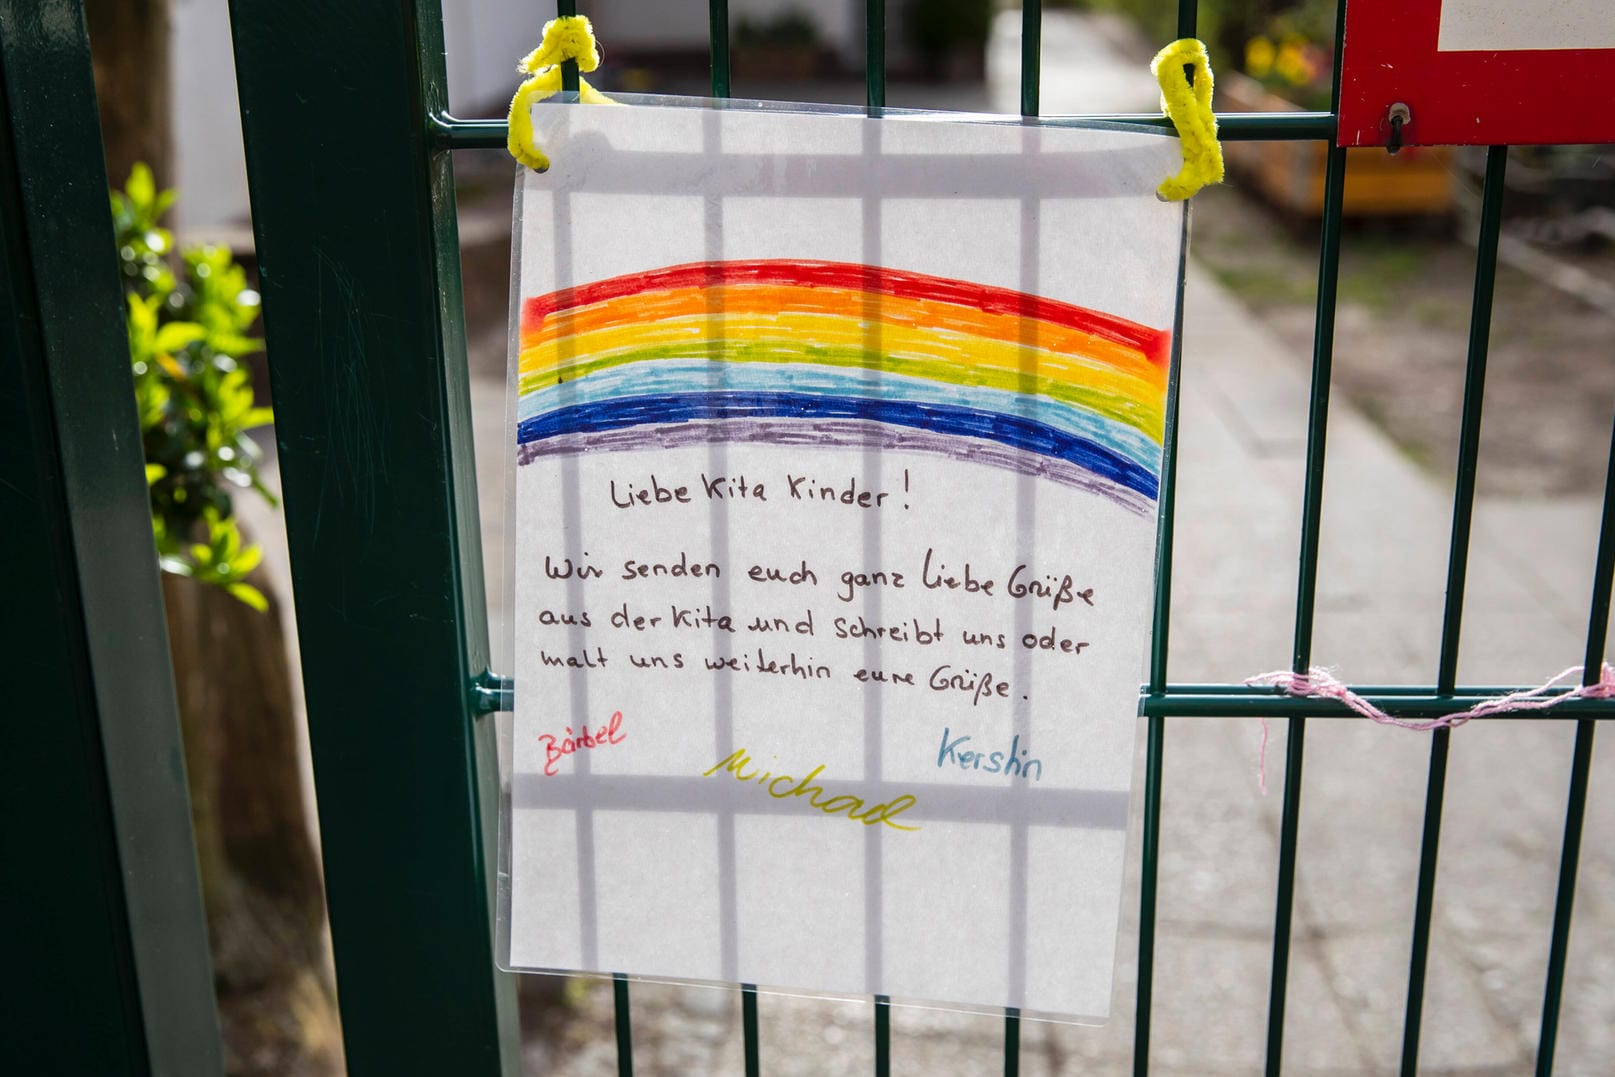 Liebe Kita Kinder!
Wir senden euch ganz liebe Grüße
aus der Kita und schreibt uns oder
malt uns weiterhin eure Grüße.
Bärbel
Michael
Kerstin